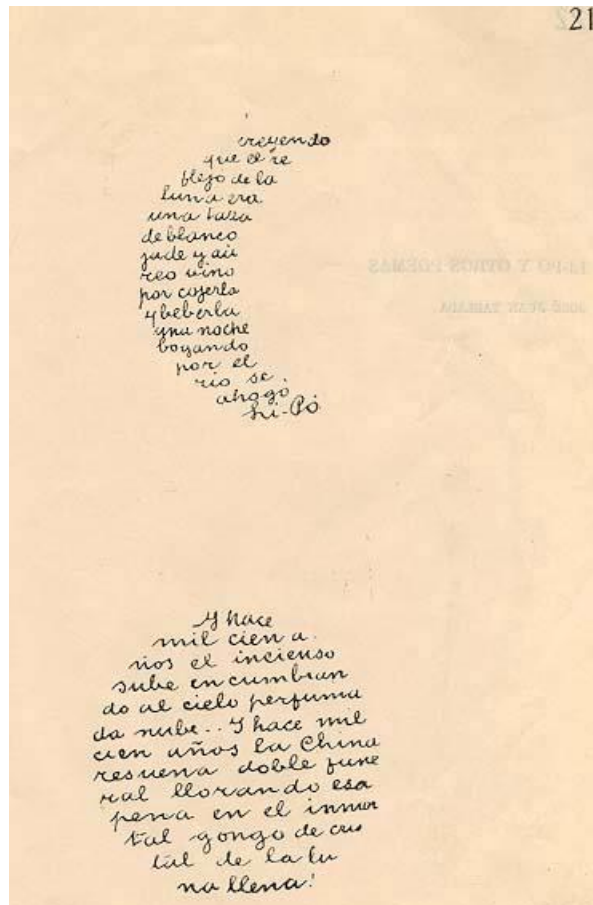 21
creyendo
que el re
flejo de la
luna era
una taza
de blanco
jade y aú
reo vino
por cojerla
y beberla
una noche
bogando
por el
rio se
ahogó
Li-Pó
LI-PO Y OTROS POEMAS
JOSÉ JUAN TABLADA
Y hace
mil cien a
ños el incienso
sube encumbran
do al cielo perfuma
da nube.. Y hace mil
cien años la China
resuena doble fune
ral llorando esa
pena en el inmor
tal gongo de cris
tal de la lu
na llena!